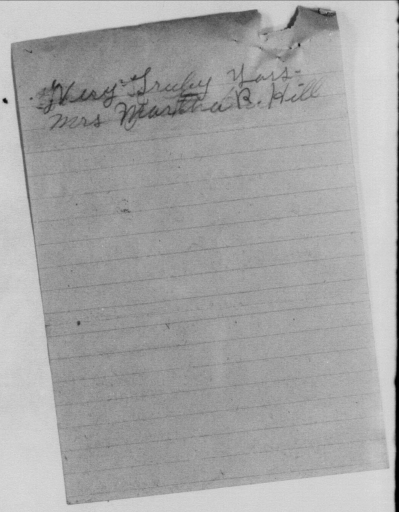 Very Truley Yors-
Mrs Martha R. Hill